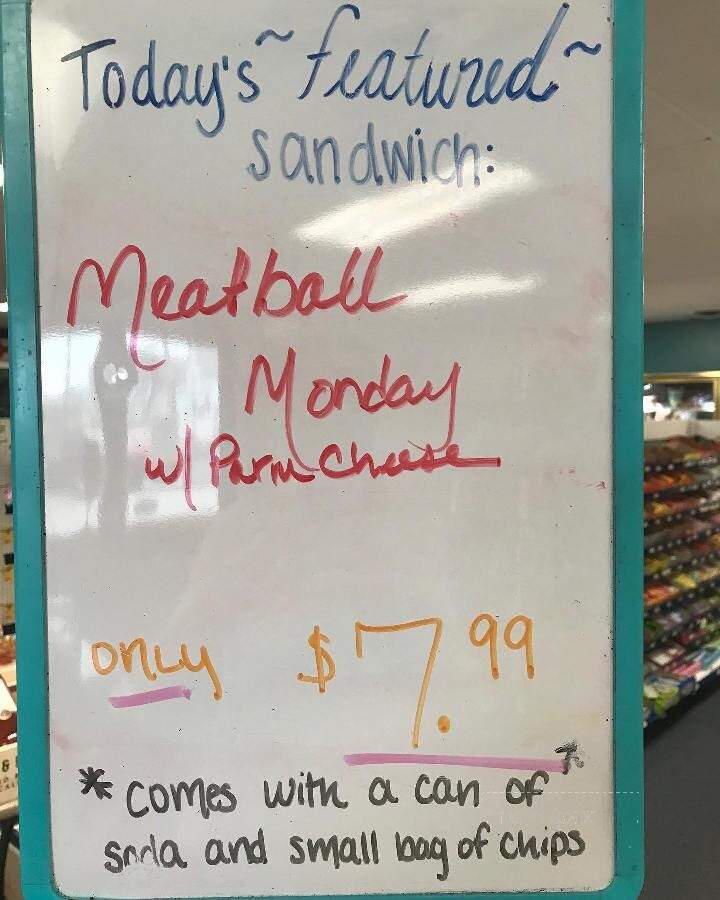 Today's ~featured~
sandwich:
Meatball
Monday
w/ Parm Cheese
only $7.99
* comes with a can of
soda and small bag of chips